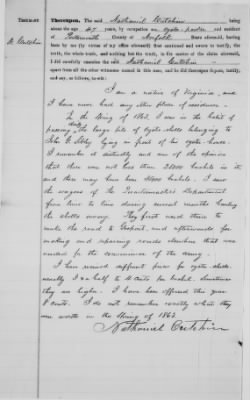 Thereupon. The said Nathaniel Cutchin being
about the age of years, by occupation an oyster and resident
of Portsmouth County of Norfolk there aforesaid, having
been by me (by virtue of my office aforesaid) first cautioned and sworn to testify, the
truth, the whole truth, and nothing but the truth, in the matter of the claim aforesaid,
I did carefully examine the said Nathaniel Cutchin
apart from all other witnesses named in this case, and he did thereupon depose, testify,
and say, as follows, to wit:
I am a native of Virginia, and
I have never had any other place of residence.
In the Spring of 1863, I was in the habit of
daily
passing the large pile of oyster shells belonging to
John G. lying in front of his oyster-house.
I remember it distinctly and am of the opinion
that there was not less than bushels in it,
and there may have been bushels. I saw
the wagons of the Quartermaster's Department
from time to time during several months hauling
the shells away. They first used them to
make the road to Gosport, and afterwards for
making and repairing roads elsewhere that was
needed for the convenience of the army.
I have received different prices for oyster shells,
usually 1 a half to cents per bushel. Sometimes
they are higher. I have been offered this year
cents. I do not remember exactly what they
were worth in the Spring of 1863.
Nathaniel Cutchin